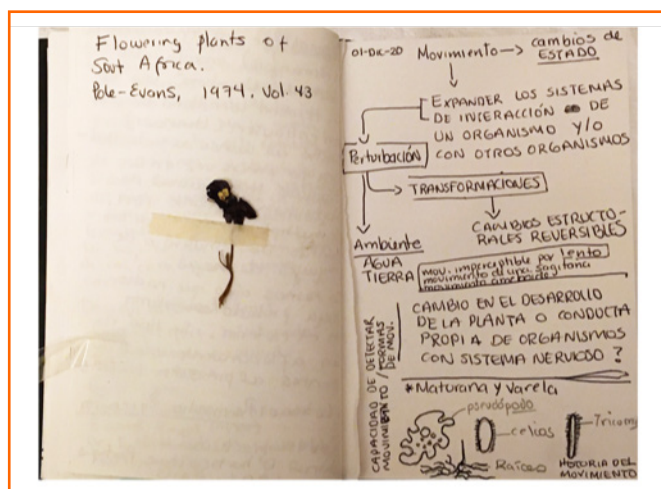 Flowering plants of
Sout Africa.
Pole-Evans, 1974. Vol. 43
01-Dic-20 Movimiento → cambios de
ESTADO
EXPANDER LOS SISTEMAS
DE INTERACCIÓN DE
UN ORGANISMO Y/O
CON OTROS ORGANISMOS
Perturbación
→ TRANSFORMACIONES
CAMBIOS ESTRUCTU-
RALES REVERSIBLES
Ambiente
AGUA
TIERRA
mov. imperceptible por lento
movimiento de una sagitaria
movimiento ameboide
CAMBIO EN EL DESARROLLO
DE LA PLANTA O CONDUCTA
PROPIA DE ORGANISMOS
CON SISTEMA NERVIOSO?
CAPACIDAD DE DETECTAR
MOVIMIENTO / FORMAS
DE MOV.
*Maturana y Varela
pseudópodo
celios
Raíces
HISTORIA DEL
MOVIMIENTO